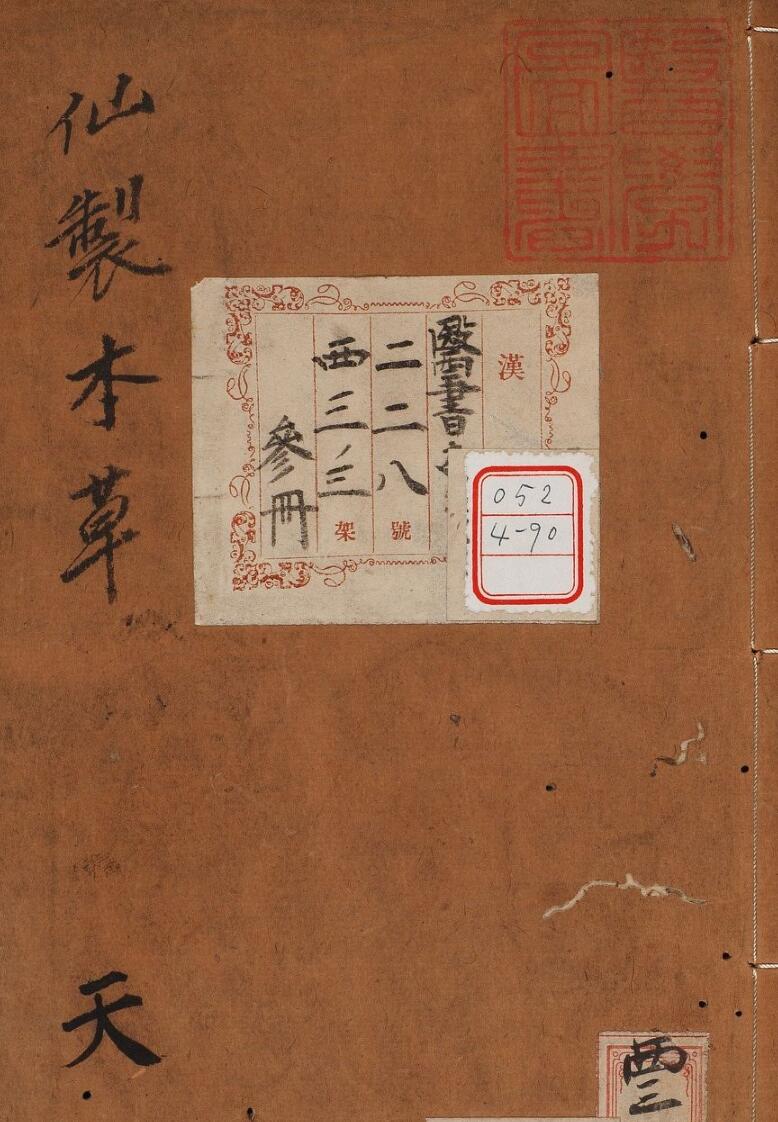 仙製本草
天
漢
醫書
二二八號
西三ノ三架
參冊
052
4-90
西三